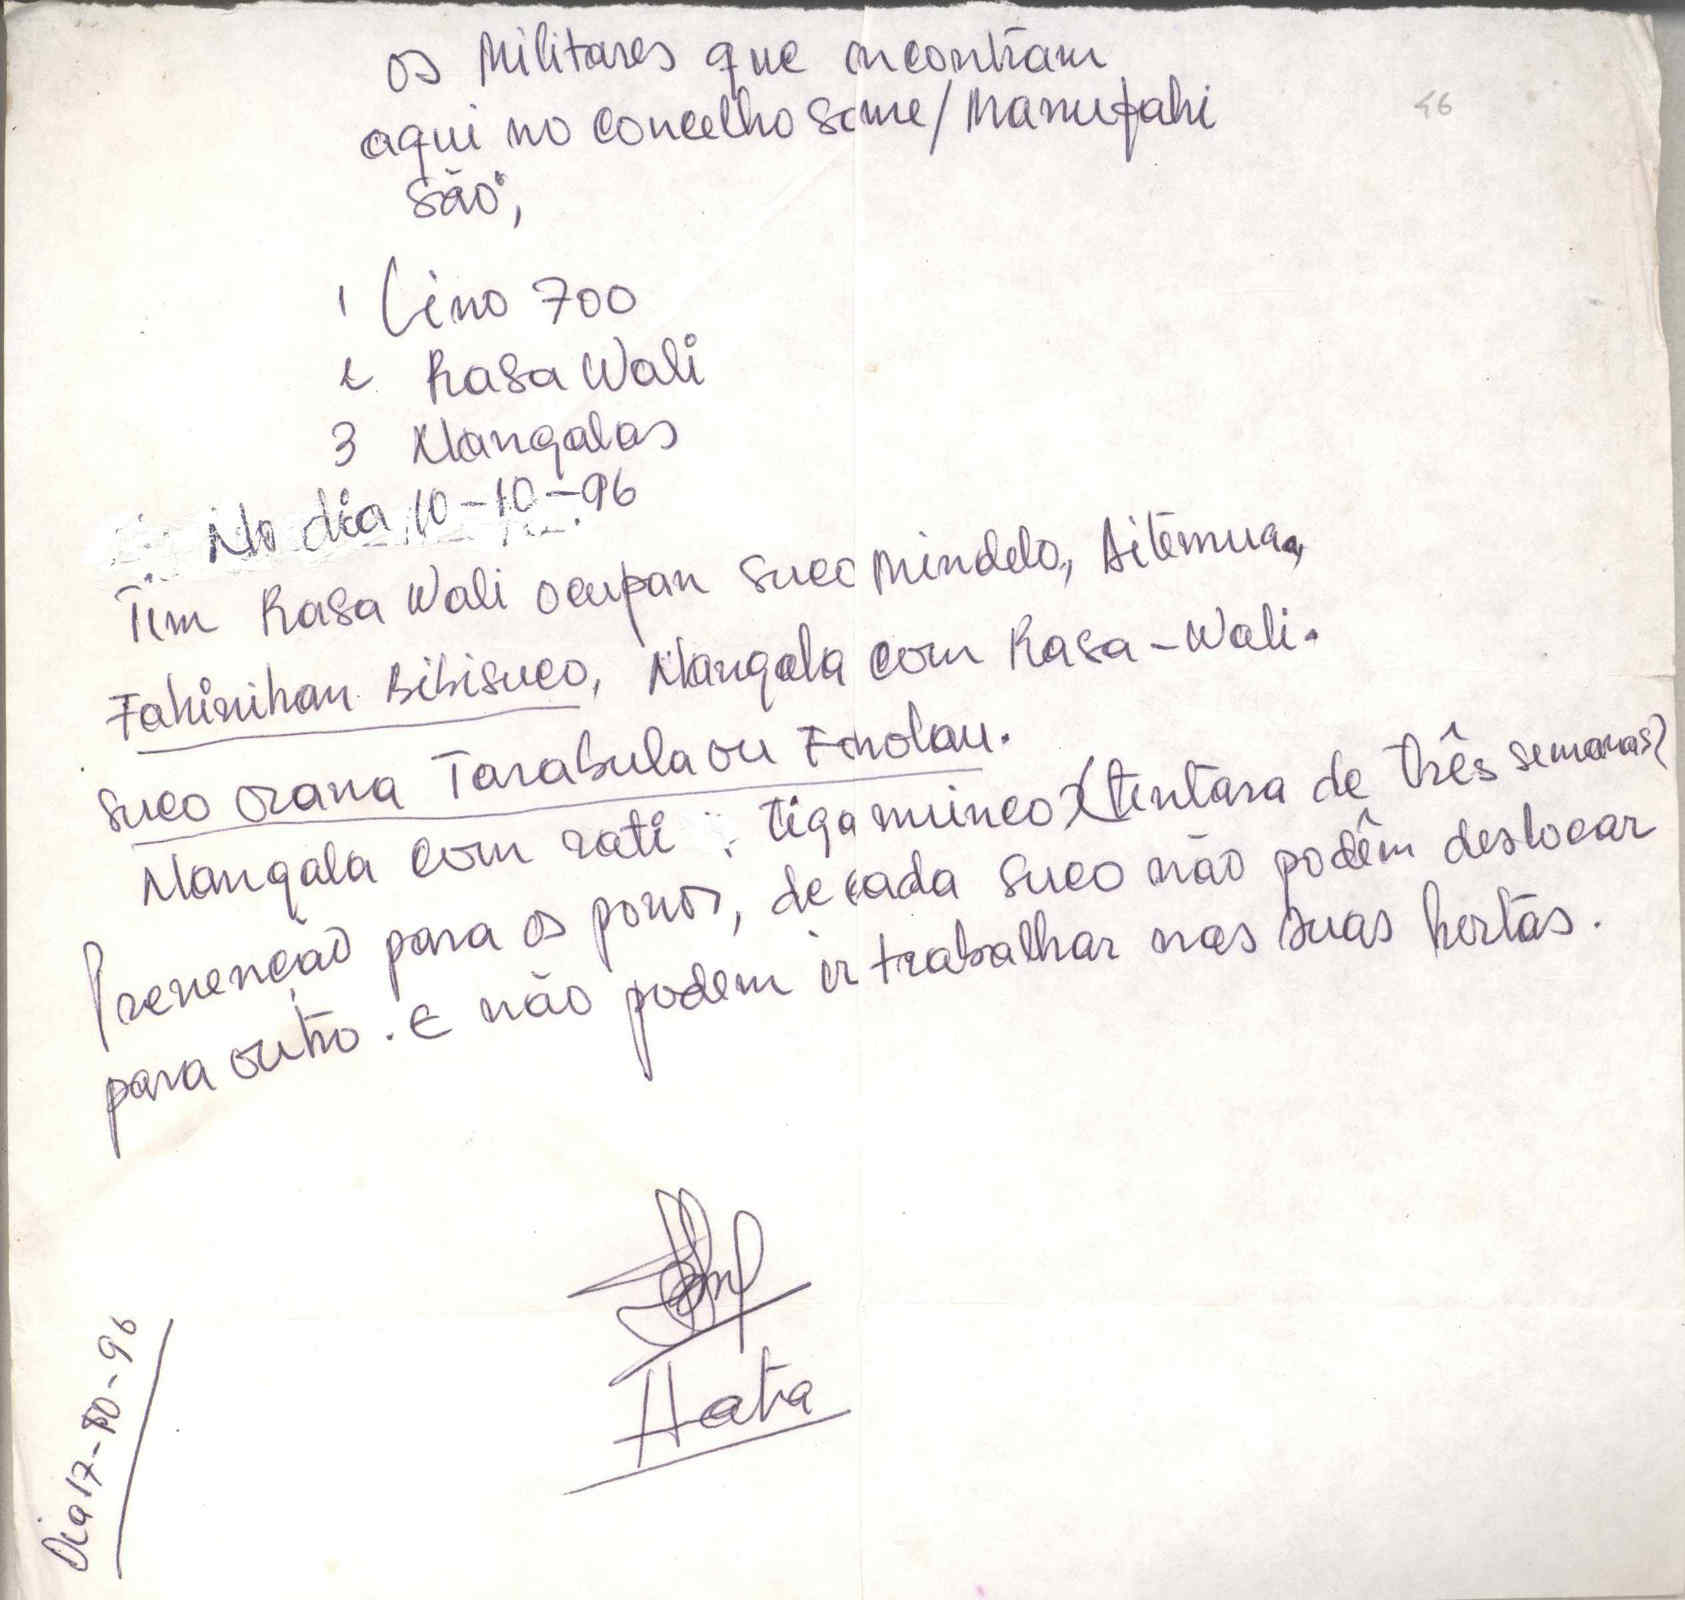 os Militares que incontram
aqui no concelho Same/Manufahi
são;
46
1 Lino 700
2 Rasa Wali
3 Nangalas
No dia 10-10-96
Tim Rasa Wali ocupan suco Mindelo, Aitemua,
Fahinihan Bibisuco, Nangala com Rasa-Wali.
suco orana Tarabula ou
Nangala com rati tiga minco (tentara de três semanas)
Prevenção para os povos, de cada suco não podêm deslocar
para outro. E não podem ir trabalhar nas suas hortas.
Hatra
Dia 17-10-96